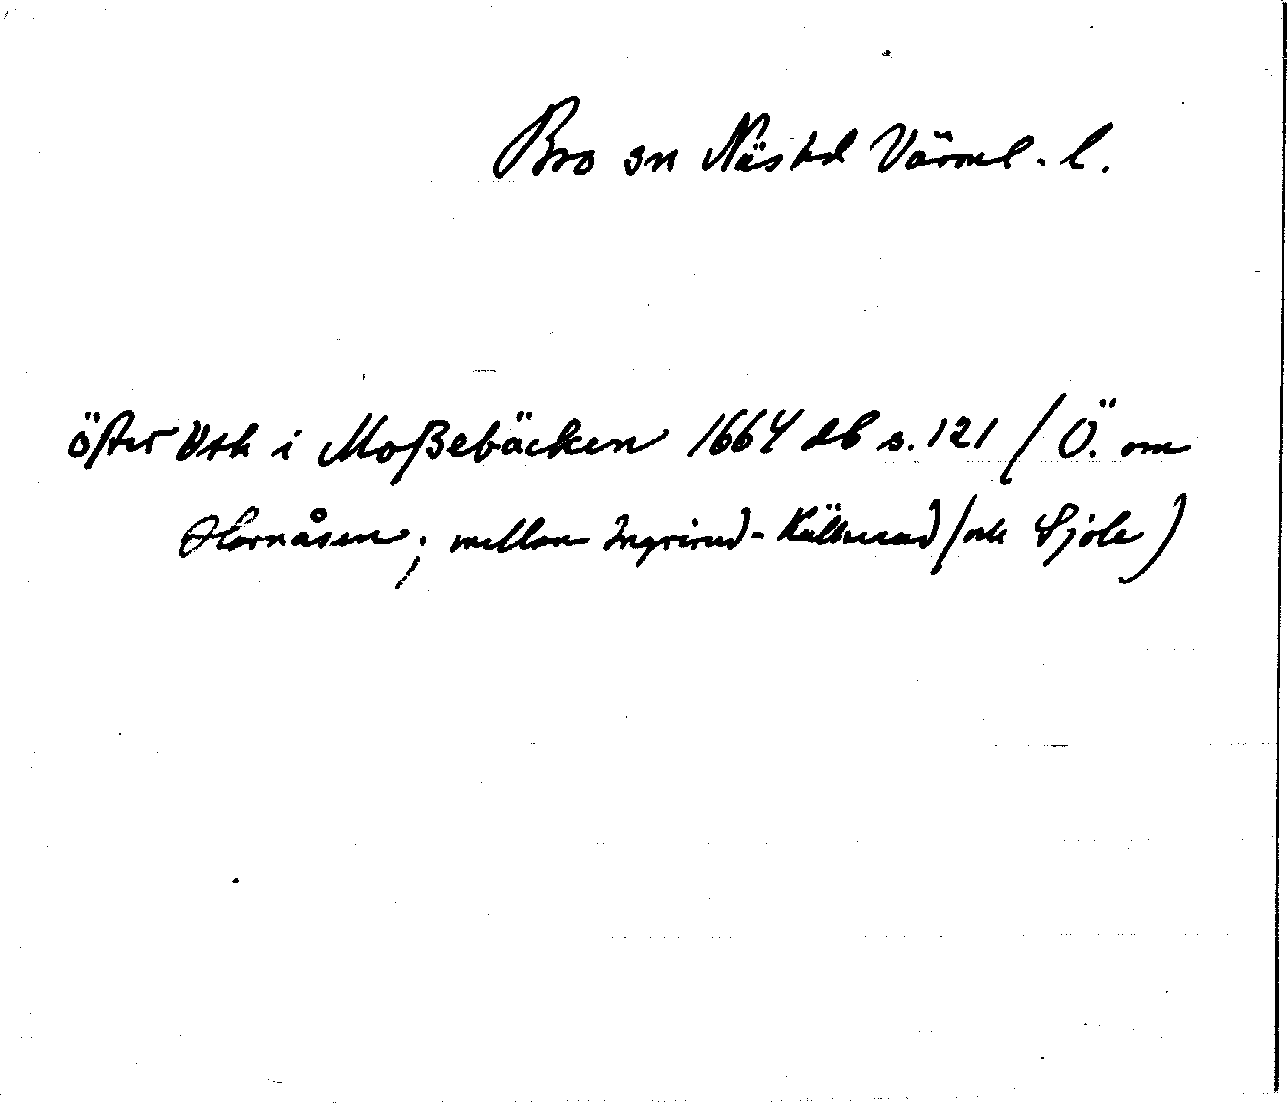 Bro sn Näs hd Värml. l.
öster Uth i Moßebäcken 1664 db s. 121 / Ö. om
Hornåsen; mellan Ingrirud - / och Sjöle)